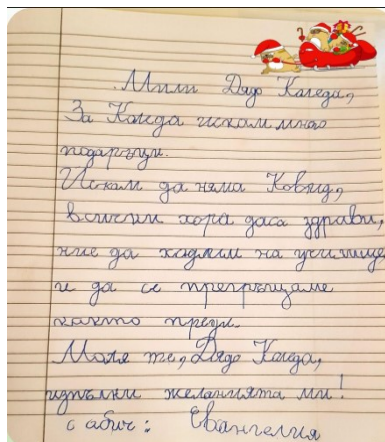 Мили Дядо Коледа,
За Коледа искам много
подаръци.
Искам да няма Ковид,
всички хора даса здрави,
ние да ходим на училище
и да се прегръщаме
както преди.
Моля те, Дядо Коледа,
изпълни желанията ми!
с обич: Евангелия